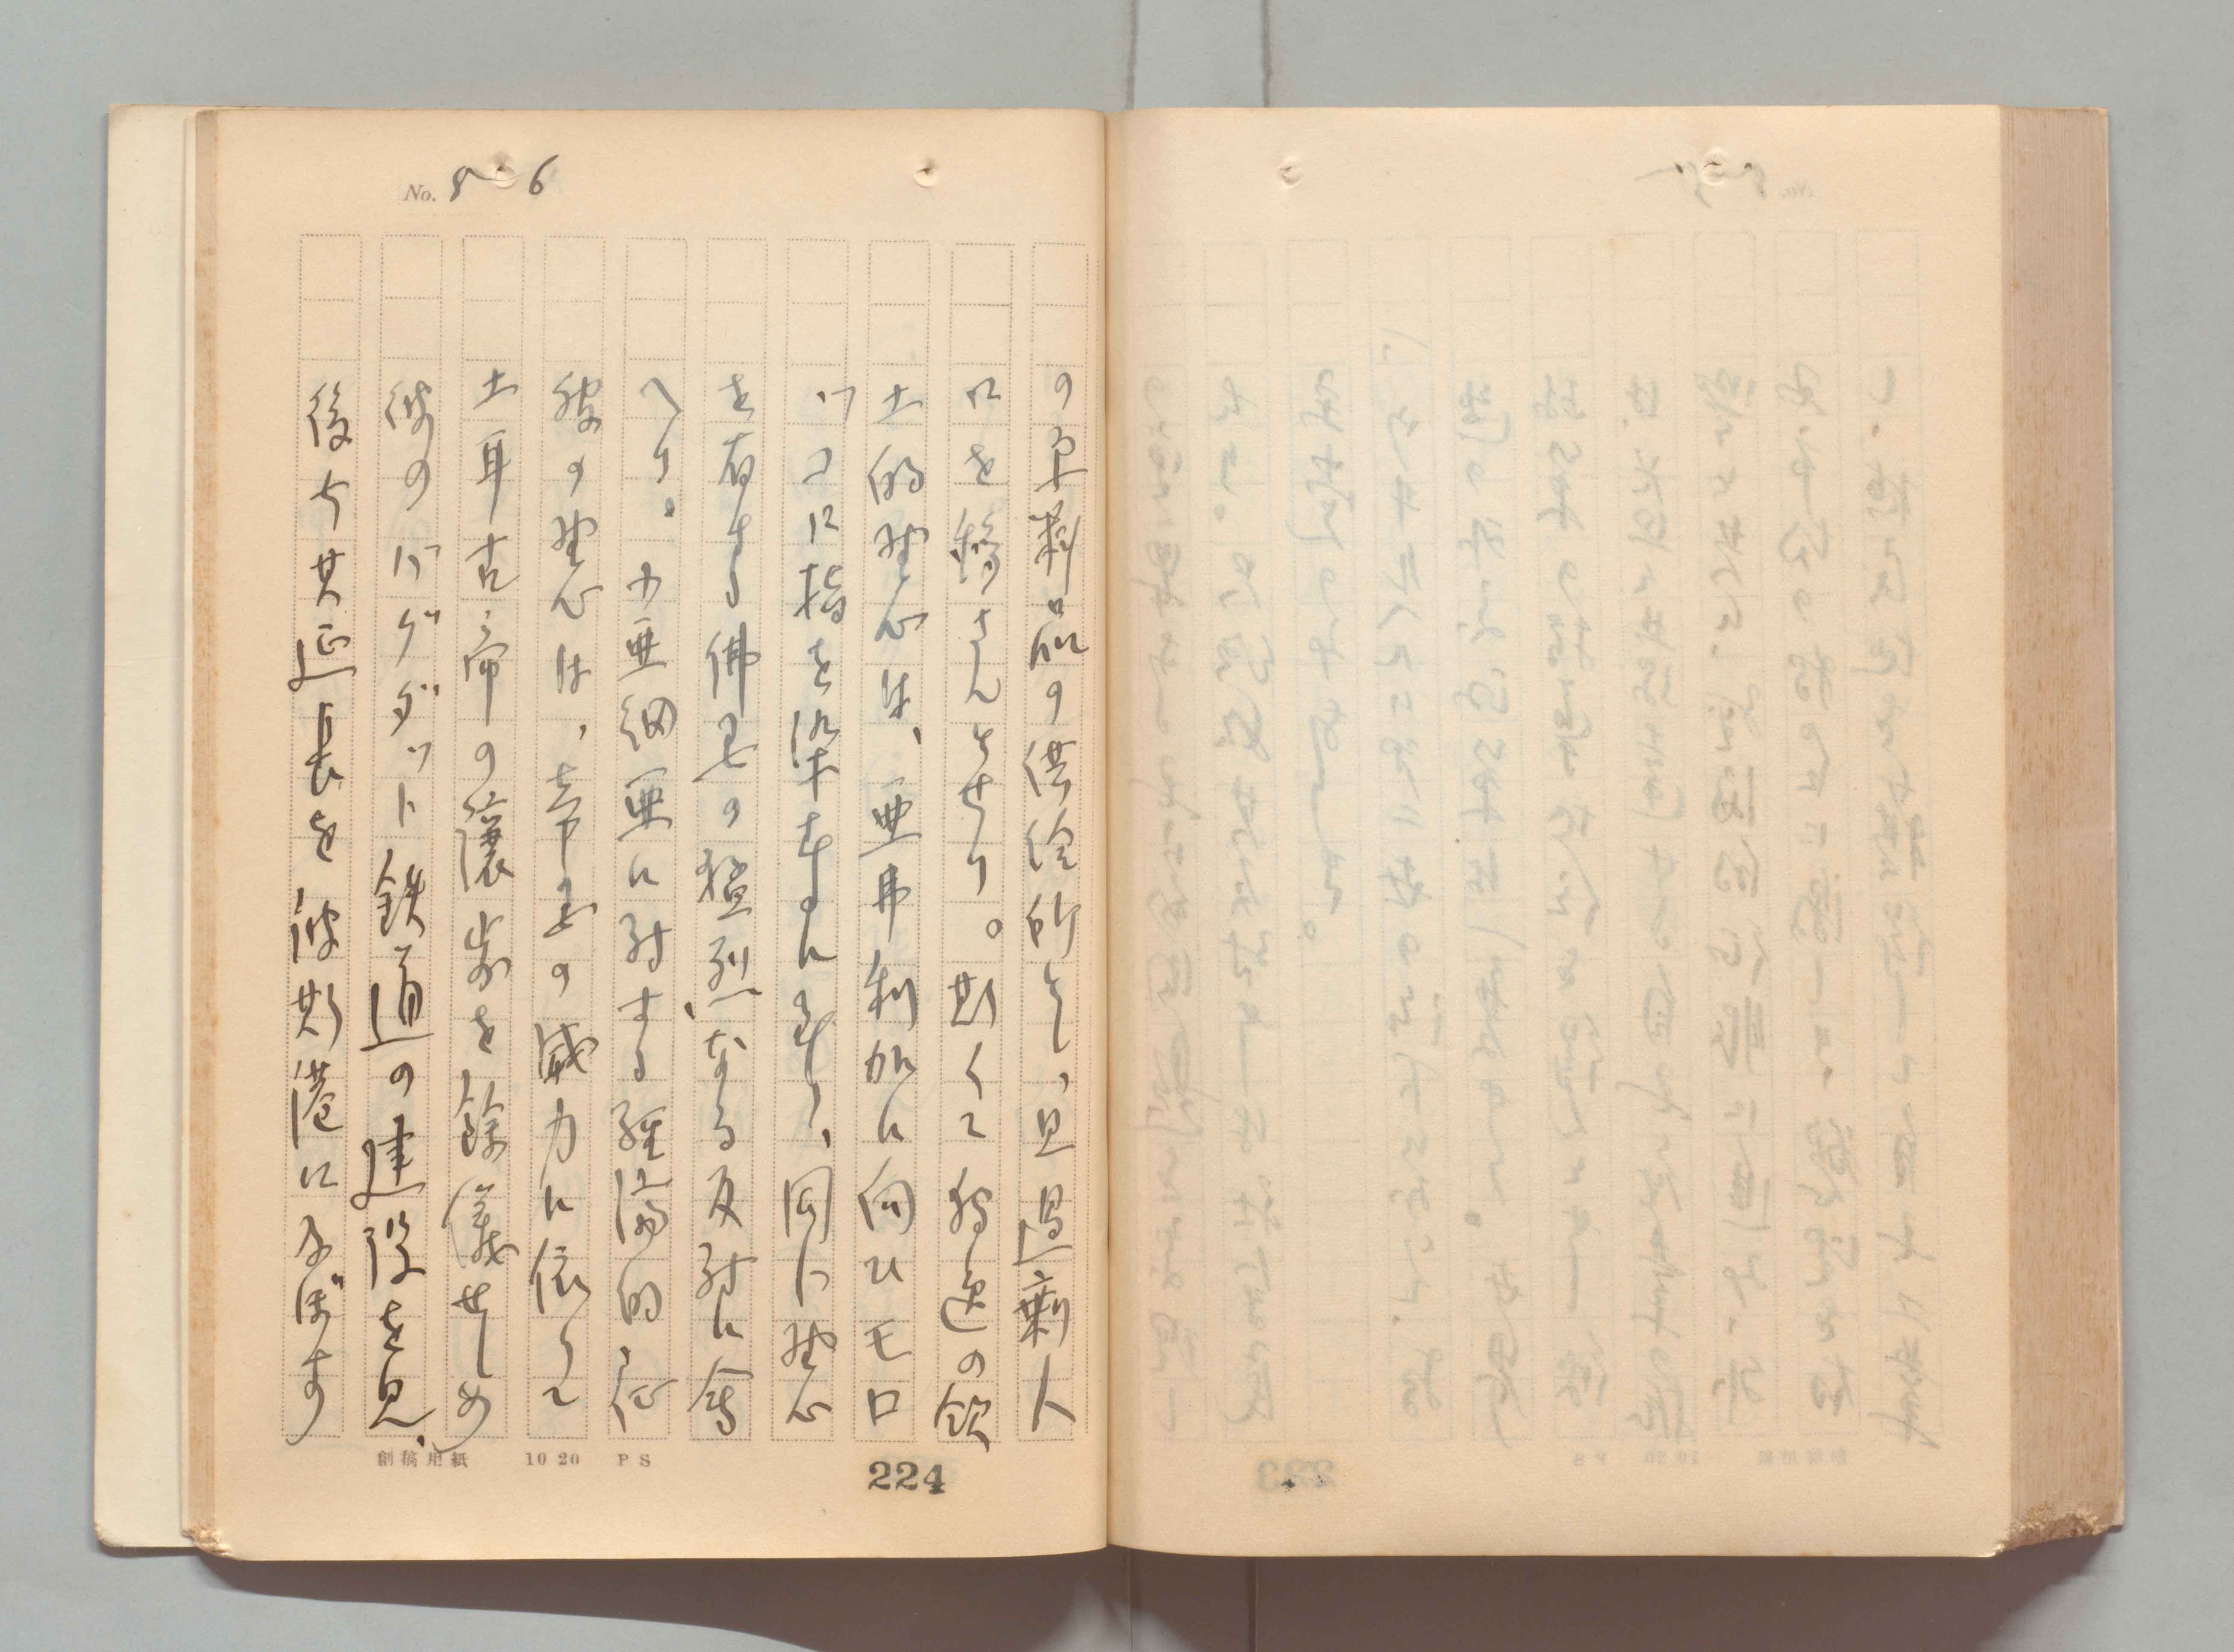 No. 8 6
の原料品の供給所とし、且過剰人
口を移さんとせり。斯くて独逸の領
土的野心は、亜弗利加に向ひモロ
ッコに指を染むるに至りしも、同じ野心
を有する佛国の猛烈なる反対に会
へり。小亜細亜に対する経済的、政
彼の野心は、帝国の威力に依りて
土耳古帝の譲歩を餘儀せしめ
彼のバグダット鉄道の建設を見、
後ち其延長を波斯港に及ぼす
創稿用紙 10 20 PS
224